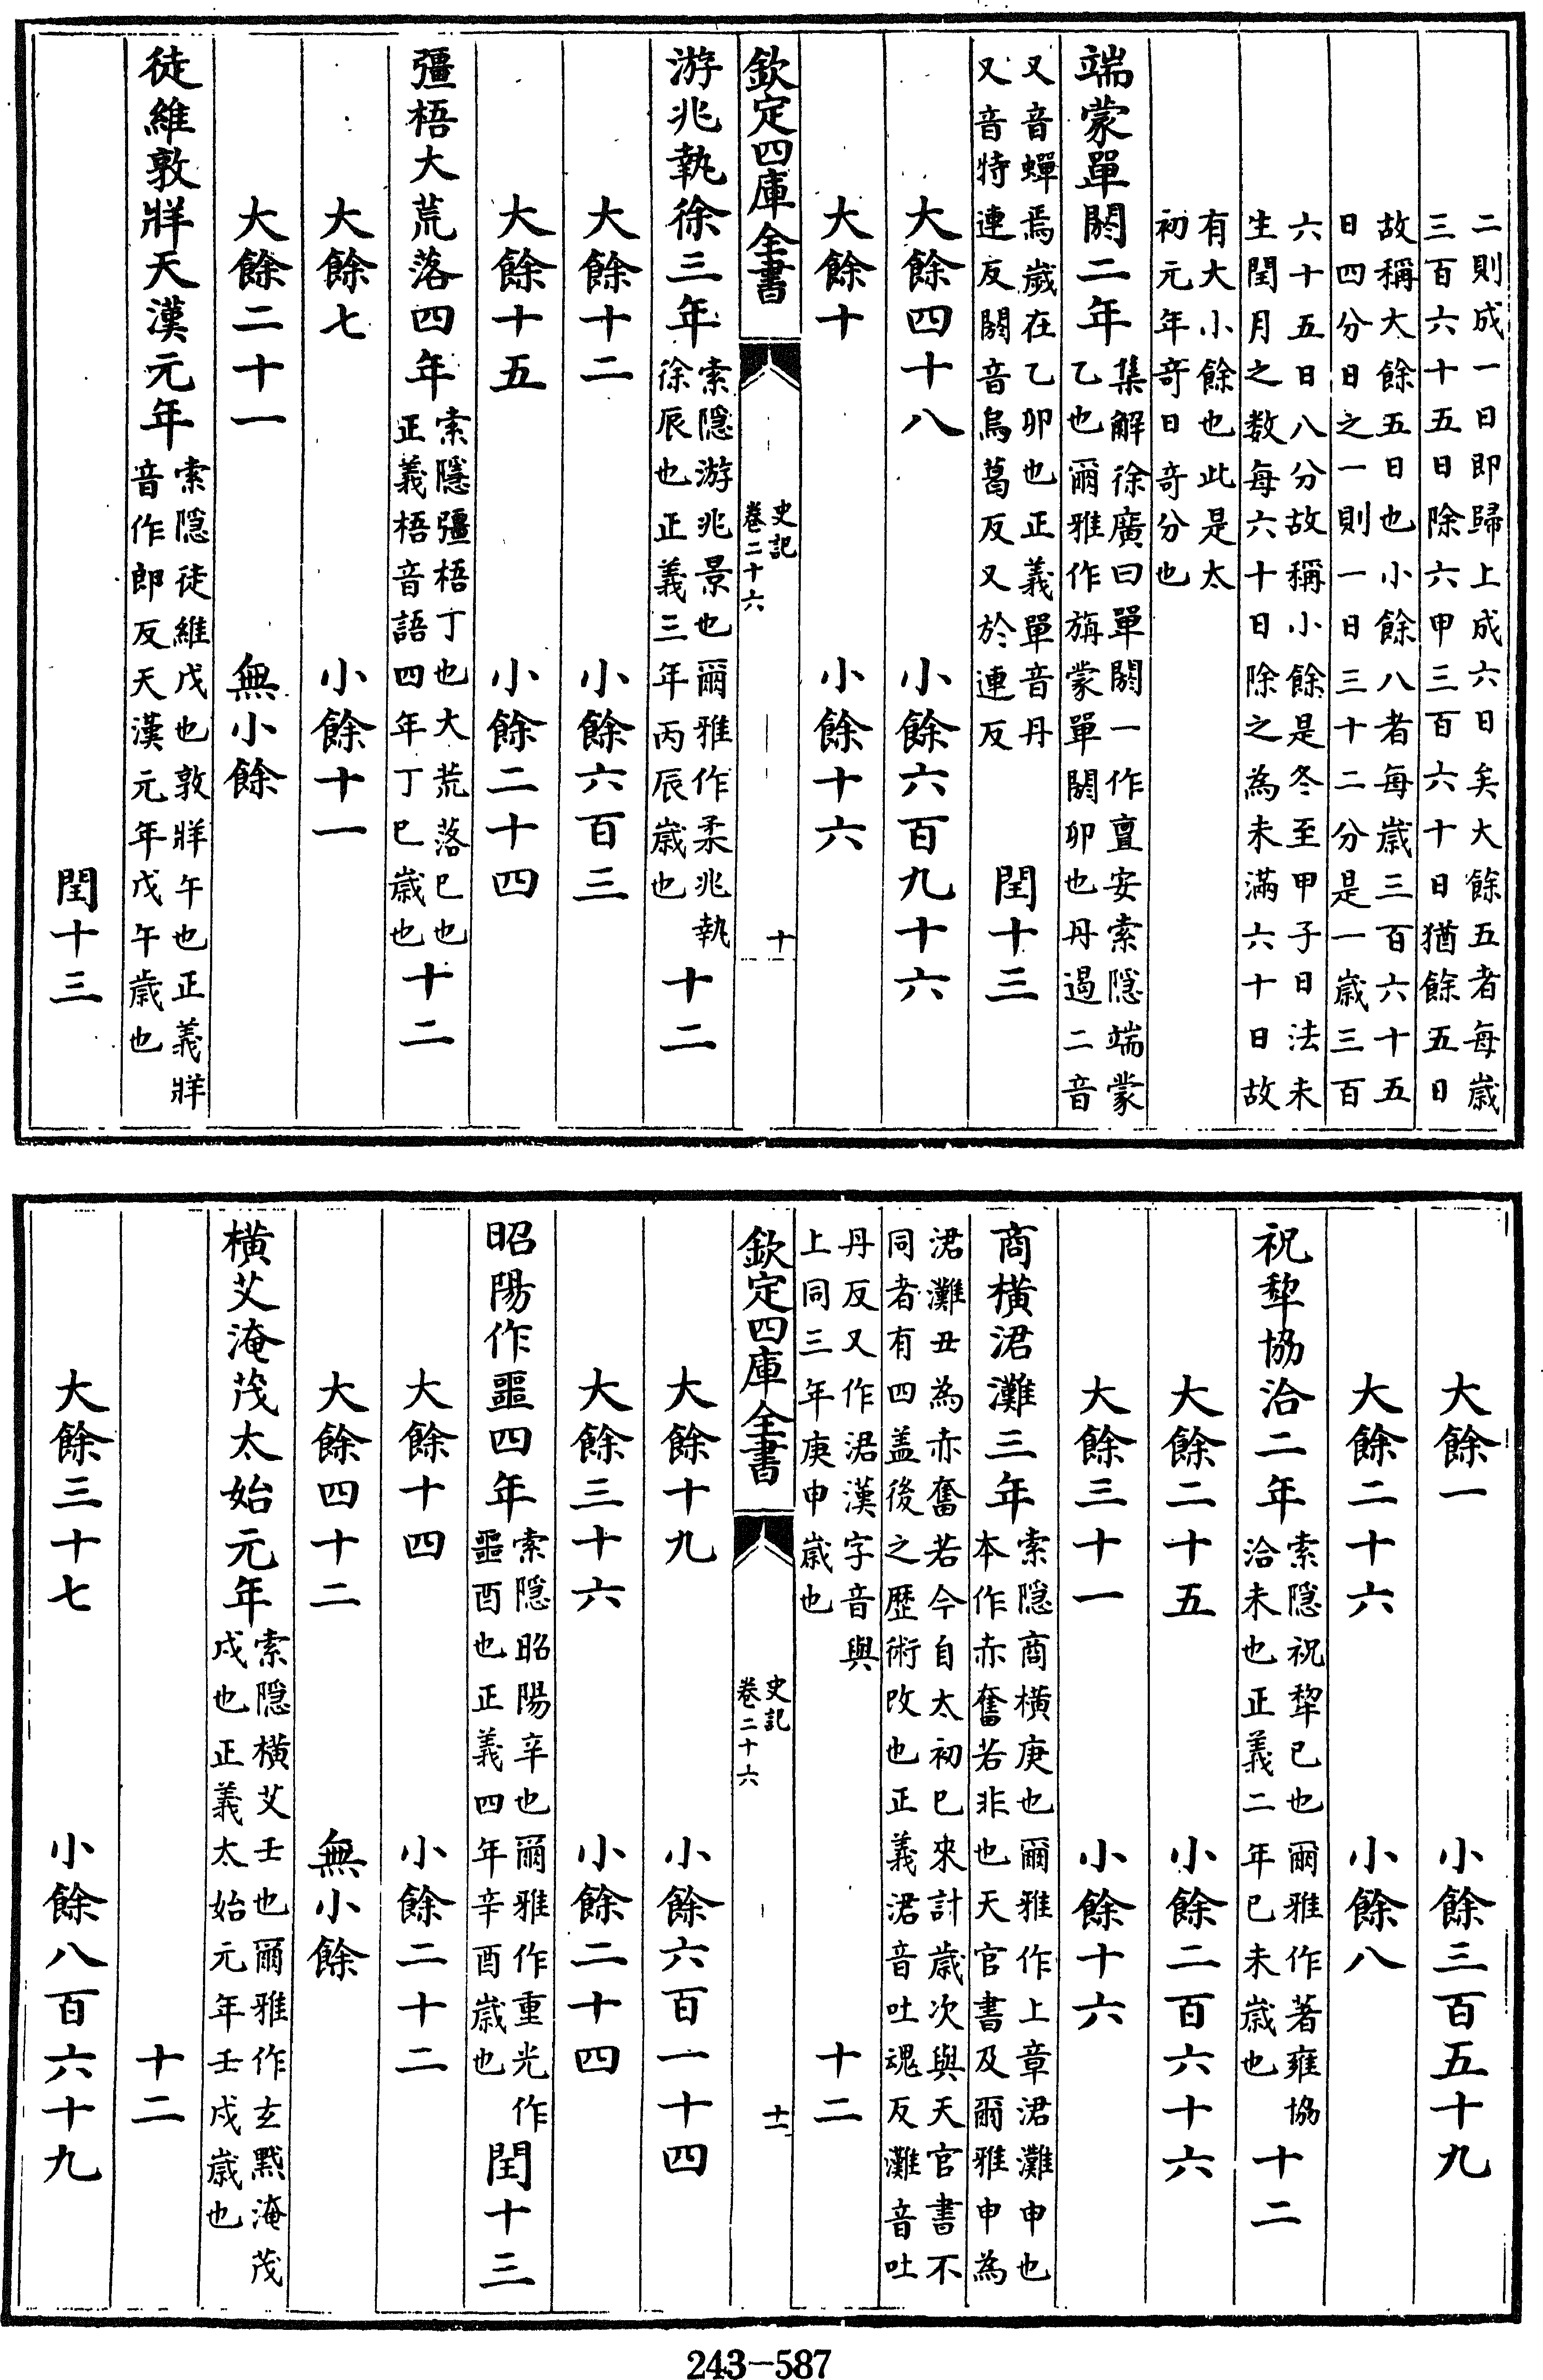 二則成一日即歸上成六日矣大餘五者每歲
三百六十五日除六甲三百六十日猶餘五日
故稱大餘五日也小餘八者每歲三百六十五
日四分日之一則一日三十二分是一歲三百
六十五日八分故稱小餘是冬至甲子日法未
生閏月之數每六十日除之為未滿六十日故
有大小餘也此是太
初元年竒日竒分也
端蒙單閼二年
集解徐廣曰單閼一作亶安索隱端蒙
乙也爾雅作旃蒙單閼卯也丹遏二音
又音蟬焉歲在乙卯也正義單音丹
又音特連反閼音烏葛反又於連反
閏十三
大餘四十八 小餘六百九十六
大餘十 小餘十六
欽定四庫全書
史記
卷二十六
十
游兆執徐三年
索隱游兆景也爾雅作柔兆執
徐辰也正義三年丙辰歲也
十二
大餘十二 小餘六百三
大餘十五 小餘二十四
彊梧大荒落四年
索隱彊梧丁也大荒落巳也
正義梧音語四年丁巳歲也
十二
大餘七 小餘十一
大餘二十一 無小餘
徒維敦牂天漢元年
索隱徒維戊也敦牂午也正義牂
音作郎反天漢元年戊午歲也
閏十三
大餘一 小餘三百五十九
大餘二十六 小餘八
祝犂協洽二年
索隱祝犂已也爾雅作著雍協
洽未也正義二年已未歲也
十二
大餘二十五 小餘二百六十六
大餘三十一 小餘十六
商橫涒灘三年
索隱商橫庚也爾雅作上章涒灘申也
本作赤奮若非也天官書及爾雅申為
涒灘丑為赤奮若今自太初已來計歲次與天官書不
同者有四盖後之歴術改也正義涒音吐魂反灘音吐
丹反又作涒漢字音與
上同三年庚申歲也
十二
欽定四庫全書
史記
卷二十六
十一
大餘十九 小餘六百一十四
大餘三十六 小餘二十四
昭陽作噩四年
索隱昭陽辛也爾雅作重光作
噩酉也正義四年辛酉歲也
閏十三
大餘十四 小餘二十二
大餘四十二 無小餘
橫艾淹茂太始元年
索隱橫艾壬也爾雅作玄黓淹茂
戍也正義太始元年壬戍歲也
十二
大餘三十七 小餘八百六十九
243-587